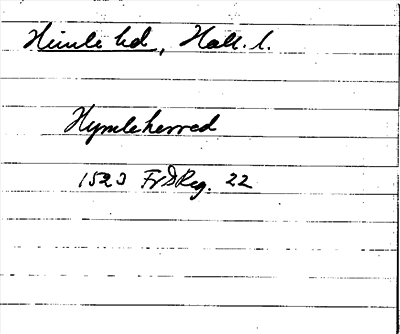 Himle hd, Hall. l.
Hymleherred
1523 FrIReg. 22